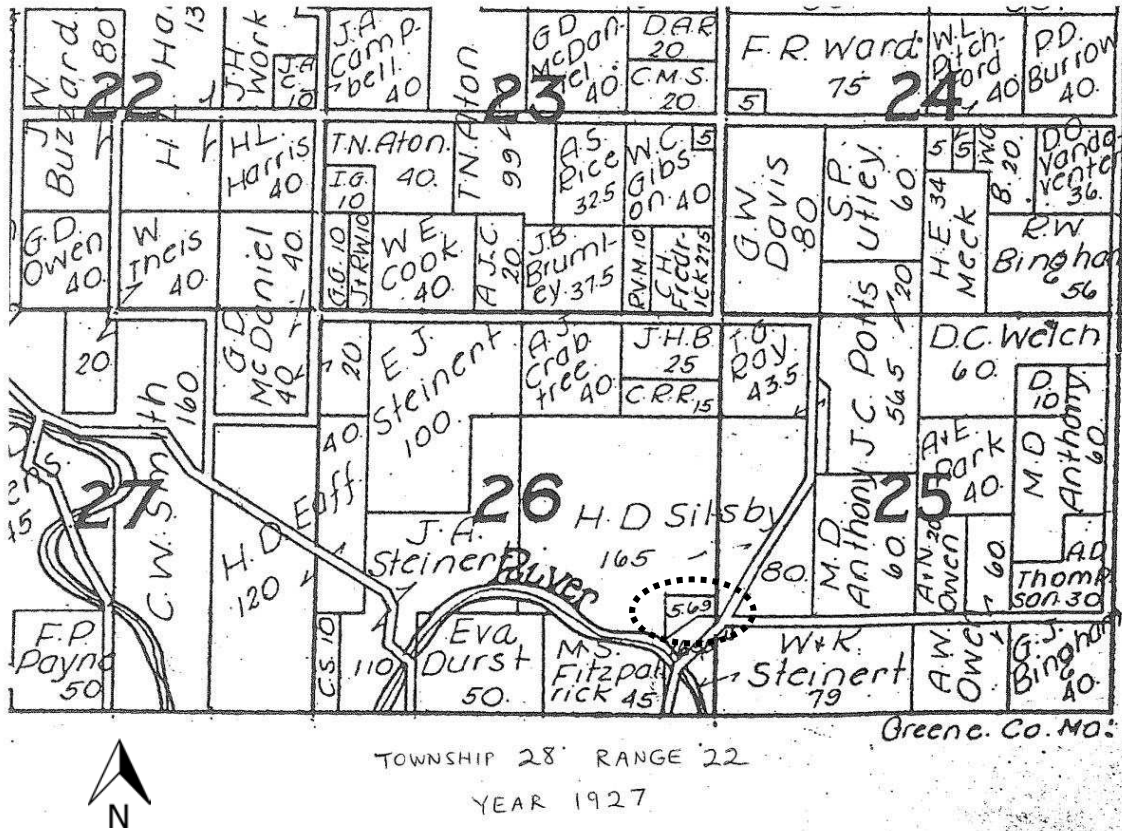 J. W. Buzzard. 80
22
H. Ha
13
J.H. Work
J.A. C. 10
J.A. Camp-
bell.
40
T.N. Aton
99
23
G D
McDan-
iel.
40
D.A.R.
20
C.M.S.
20
F. R. Ward.
75
5
24
W.L.
Pitch-
ford
40
D.D.
Burrow
40.
H.L.
Harris
40
T.N. Aton.
40.
I.G.
10
A.S.
Rice
32.5
W.C.
Gibs
on. 40
5
G.W.
Davis
80
S.P.
Utley.
60
5
5
B. 20.
D.O.
Vande
venter
36.
G.D.
Owen
40.
W.
Ineis
40.
G.D.
McDaniel
40.
40
G.G. 10
J+RW 10
W E.
Cook
40
A.J.C.
20
J.B.
Bruml-
ey. 37.5
R.V.M. 10
C.H.
Fredr-
ick 27.5
H.E. 34
Meek
R.W.
Bingham
56
20
20
E. J.
Steinert
100.
A. J.
Crab
tree.
40
J.H.B
25
C.R.R. 15
T.G.
Ray
43.5
J.C. Potts
56.5
20
D.C. Welch
60.
D.
10
M.D.
Anthony.
60.
C.W. Smith
160.
27
45
40
H.D. Eaff.
120
J. A.
Steinert
26
River
H. D Silsby
165
80.
5.69
M.D.
Anthony
60.
25
A+E.
Park
40.
A+N. 20
Owen
60.
A.D.
Thomp.
son. 30
F.P.
Payne
50.
C.S. 10
110
Eva
Durst
50.
M.S.
Fitzpat
rick 45
W+K.
Steinert
79
A.W.
Owen
G. J.
Bingham
40.
Greene. Co. Mo.
TOWNSHIP 28 RANGE 22
YEAR 1927
N